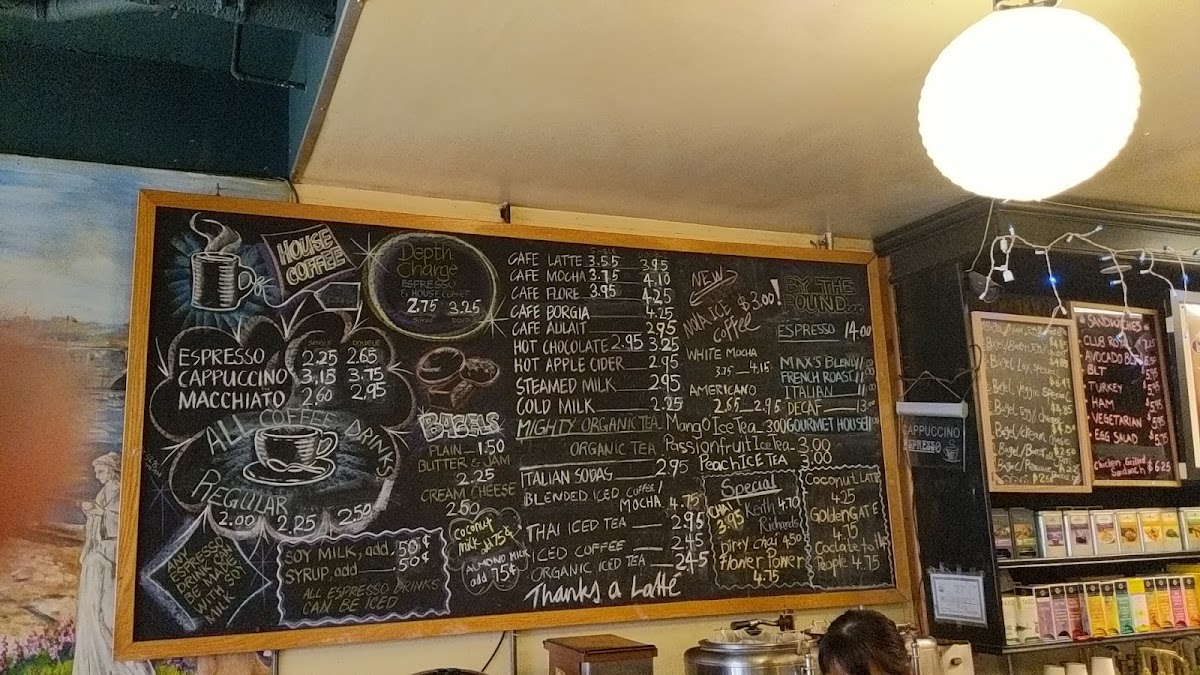 HOUSE
COFFEE
Depth
Charge
ESPRESSO
& HOUSE COFFEE
2.75 3.25
SINGLE DOUBLE
ESPRESSO 2.25 2.65
CAPPUCCINO 3.15 3.75
MACCHIATO 2.60 2.95
ALL COFFEE DRINKS
REGULAR
2.00 2.25 2.50
ANY
ESPRESSO
DRINK CAN
BE MADE
WITH SOY
MILK
SOY MILK, add .50¢
SYRUP, add .50¢
ALL ESPRESSO DRINKS
CAN BE ICED
BAGELS
PLAIN 1.50
BUTTER & JAM
2.25
CREAM CHEESE
2.50
coconut
milk .75¢
ALMOND MILK
add 75¢
CAFE LATTE 3.55 3.95
CAFE MOCHA 3.75 4.10
CAFE FLORE 3.95 4.25
CAFE BORGIA 4.25
CAFE AULAIT 2.95
HOT CHOCOLATE 2.95 3.25
HOT APPLE CIDER 2.95
STEAMED MILK 2.95
COLD MILK 2.25
MIGHTY ORGANIC TEA
ORGANIC TEA
ITALIAN SODAS 2.95
BLENDED ICED COFFEE/
MOCHA 4.75
THAI ICED TEA 2.95
ICED COFFEE 2.45
ORGANIC ICED TEA 2.45
Thanks a Latté
NEW
NOLA ICE $3.00!
Coffee
WHITE MOCHA
3.75 4.15
AMERICANO
2.65 2.95
Mango Ice Tea 3.00
Passionfruit Ice Tea 3.00
Peach ICE TEA 3.00
BY THE
POUND...
ESPRESSO 14.00
MAX'S BLEND
FRENCH ROAST
ITALIAN
DECAF
GOURMET HOUSE
Special
CHAI 3.95
Keith 4.70
Richards
Dirty chai 4.50
Flower Power
4.75
Coconut LATTE
4.25
GoldenGATE
4.75
Coclate to the
People 4.75
CAPPUCCINO
ESPRESSO
SANDWICHES
CLUB ROYAL
AVOCADO BLT
BLT
TURKEY
HAM
VEGETARIAN
EGG SALAD
Chicken Grilled
Sandwich $6.25